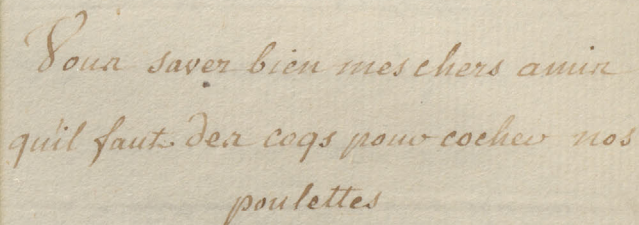 Vous savez bien mes chers amis
qu'il faut des coqs pour cocher nos
poulettes